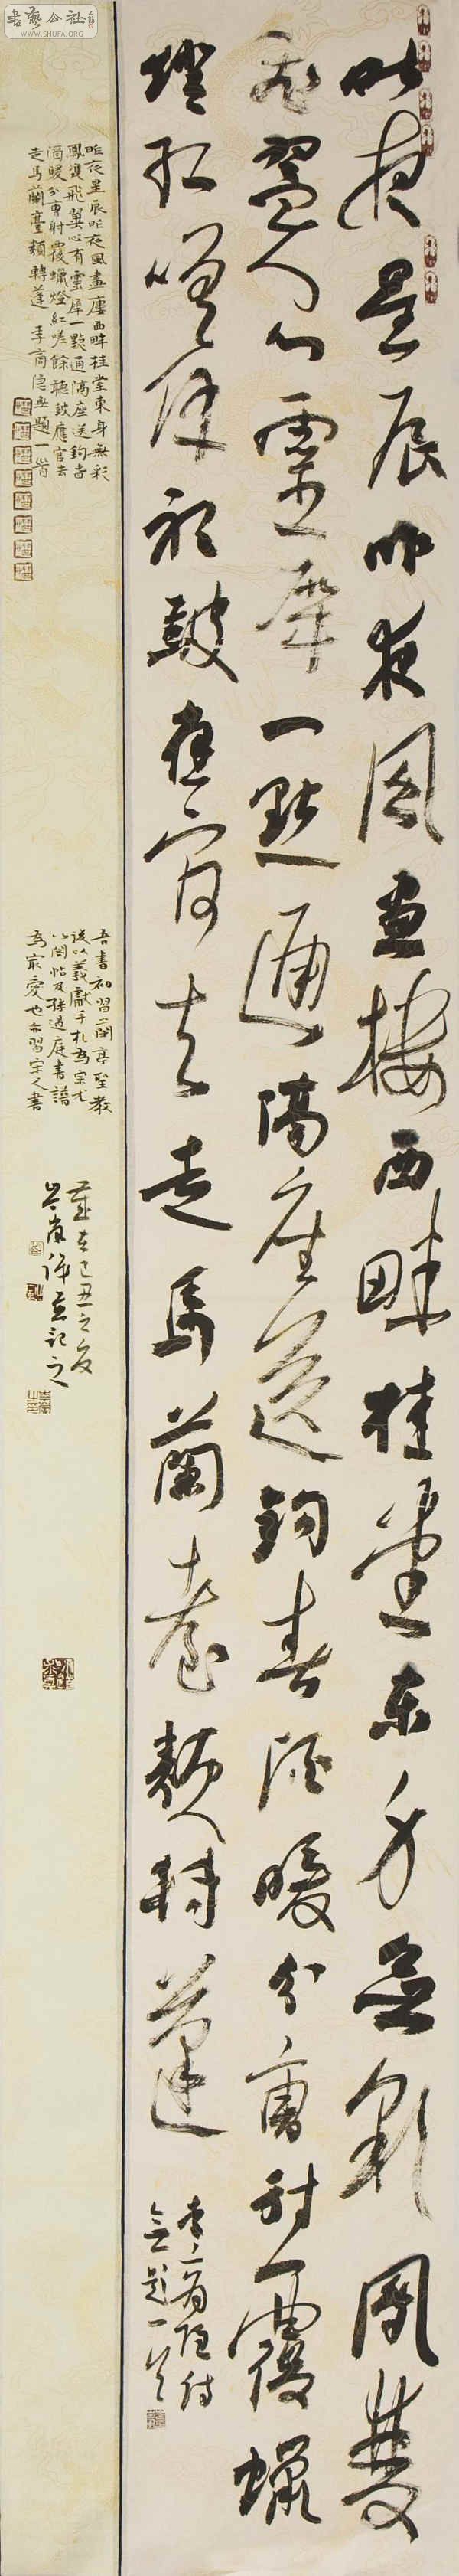 書藝公社
WWW.SHUFA.ORG
昨夜星辰昨夜風畫樓西畔桂堂東身無彩鳳雙
飛翼心有靈犀一點通隔座送鉤春酒暖分曹射覆蠟
燈紅嗟余聽鼓應官去走馬蘭臺類轉蓬
李商隱詩
無題一首
昨夜星辰昨夜風畫廔西畔桂堂東身無彩
鳳雙飛翼心有靈犀一點通隔座送鉤春
酒暖分曹射覆蠟燈紅嗟餘聽鼓應官去
走馬蘭臺類轉蓬 李商隱無題一首
吾書初習蘭亭聖教
後以羲獻手札為宗尤
以閣帖及孫過庭書譜
為最愛也亦習宋人書
歲在己丑之夏
並記之